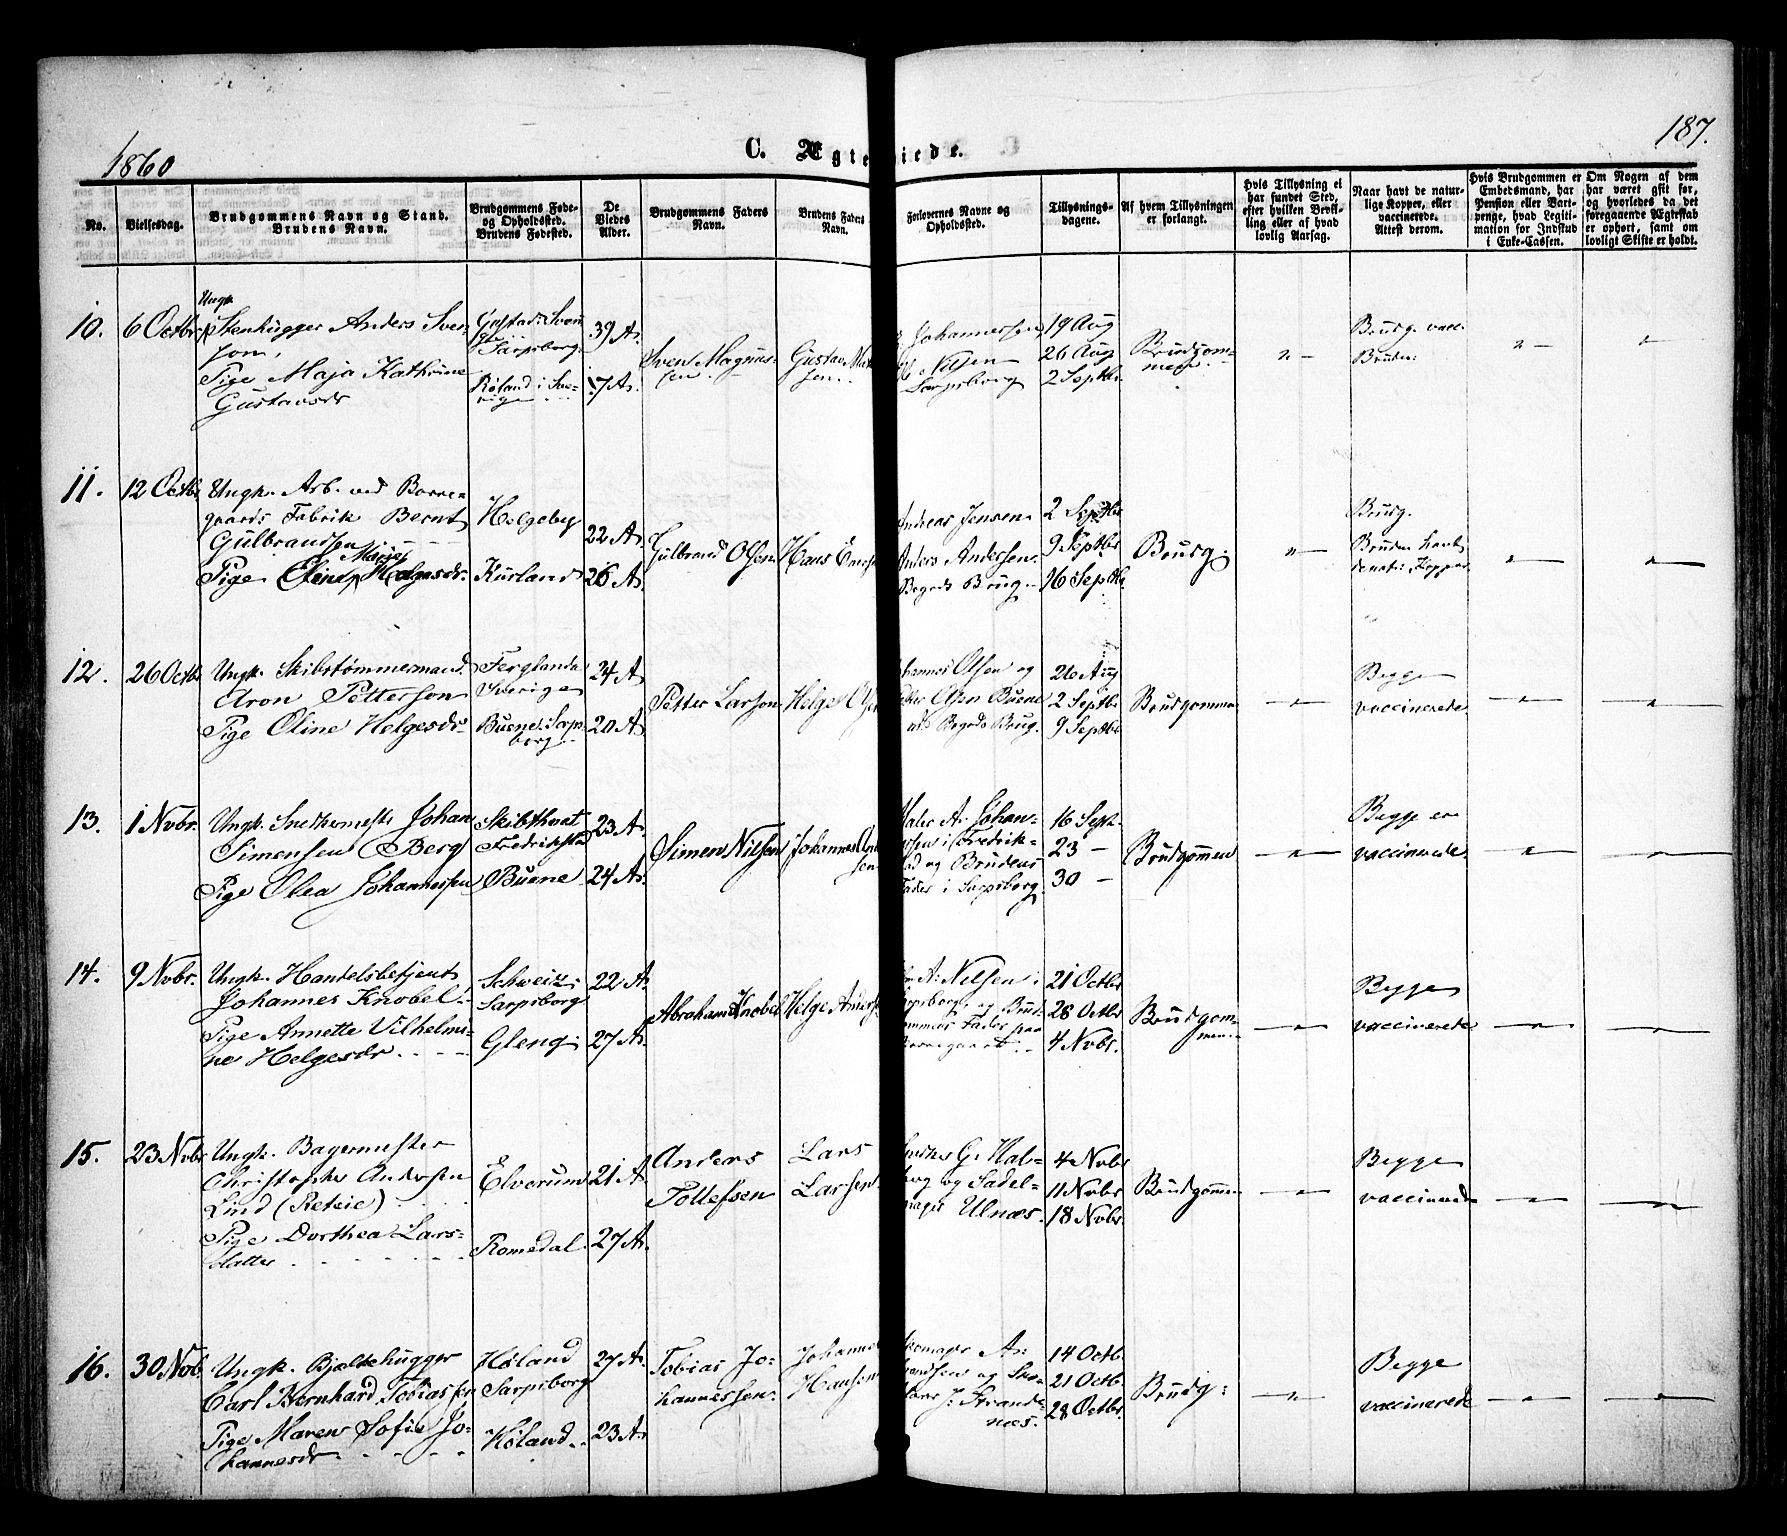 1860
C. Ægteviede.
187.
No.
Vielsesdag.
Brudgommens Navn og Stand.
Brudens Navn.
Brudgommens Føde-
og Opholdssted.
Brudens Fødested.
De
Viedes
Alder.
Brudgommens Faders
Navn.
Brudens Faders
Navn.
Forlovernes Navne og
Opholdsted.
Tillysnings-
dagene.
Af hvem Tillysningen
er forlangt.
Hvis Tillysning ei
har fundet Sted,
efter hvilken Bevil-
ling eller af hvad
lovlig Aarsag.
Naar havt de natur-
lige Kopper, eller
vaccinerede.
Attest derom.
Hvis Brudgommen er
Embedsmand, har
Pension eller Vart-
penge, hvad Legiti-
mation for Indskud
i Enke-Cassen.
Om Nogen af dem
har været gift før,
og hvorledes da det
foregaaende Ægteskab
er ophørt, samt om
lovligt Skifte er holdt.
10.
6 Octbr
Ungk
Stenhugger Anders Sven-
son,
Pige Maja Kathrine
Gustavsdr
Sarpsborg
i Sve-
rige
39 A.
Sven Magnus-
sen
Gustav
Johannessen
Nilsen
Sarpsborg
19 Aug
26 Aug
2 Septbr.
Brudgom-
men
Brudg. vacc.
Bruden
11.
12 Octbr
Ungk. Arb. ved Borre-
gaards Fabrik Bernt
Gulbrandsen
Pige Oline Marie Helgesdr.
Helgeby
Kurland
22 A.
26 A.
Gulbrand Olsen
Hans
Andreas Jensen
Anders Andersen
Begeds Brug
2 Septbr
9 Septbr
16 Septbr
Brudg.
Brudg.
Bruden havt
de nat: Kopper
12.
26 Octbr
Ungk. Skibstømmermand
Aron Petterson
Pige Oline Helgesdr
Ferglanda
Sverige
Buene Sarps
borg
24 A
20 A
Petter Larson
Helge Olsen
Johannes Olsen og
Olsen Buene
Begeds Brug.
26 Aug
2 Septbr
9 Septbr
Brudgomme
Begge
vaccinerede
13.
1 Nvbr.
Ungk. Snedkermestr Johan
Simensen Berg
Pige Olea Johannessen
Skibthvet
Fredrikstad
Buene
23 A.
24 A.
Simen Nilsen
Johannes An
sen
Maler A. Johan-
sen i Fredrik-
stad og Brudens
Fader i Sarpsborg
16 Sept.
23 —
30 —
Brudgommen
Begge er
vaccinerede
14.
9 Nvbr.
Ungk. Handelsbetjent
Johannes Knobel
Pige Annette Vilhelmi-
ne Helgesdr
Schweiz
Sarpsborg
Gleng
22 A.
27 A.
Abraham Knobel
Helge Anders
A: Nilsen i
Sarpsborg og Brud-
gommens Fader paa
Borregaard
21 Octbr
28 Octbr
4 Nvbr.
Brudgom-
men
Begge
vaccinerede
15.
23 Nvbr
Ungk. Bagermester
Christopher Andersen
Lind
Pige Dorthea Lars-
datter
Elverum
Romedal
21 A
27 A.
Anders
Tollefsen
Lars
Larsen
Snedker G. Hal-
berg og Sadel-
mager Ulnæs.
4 Nvbr
11 Nvbr
18 Nvbr.
Brudgommen
Begge
vaccinerede
16.
30 Nvb.
Ungk. Bjælkehugger
Carl Bernhard Tobiassen
Pige Maren Sofie Jo-
hannesdr
Høland
Sarpsborg
Høland
27 A.
23 A.
Tobias Jo-
hannessen
Johannes
Hansen
Skomager A:
og Sko-
mager J. Strande-
næs.
14 Octb.
21 Octb.
28 Octbr.
Brudg:
Begge
vaccinerede